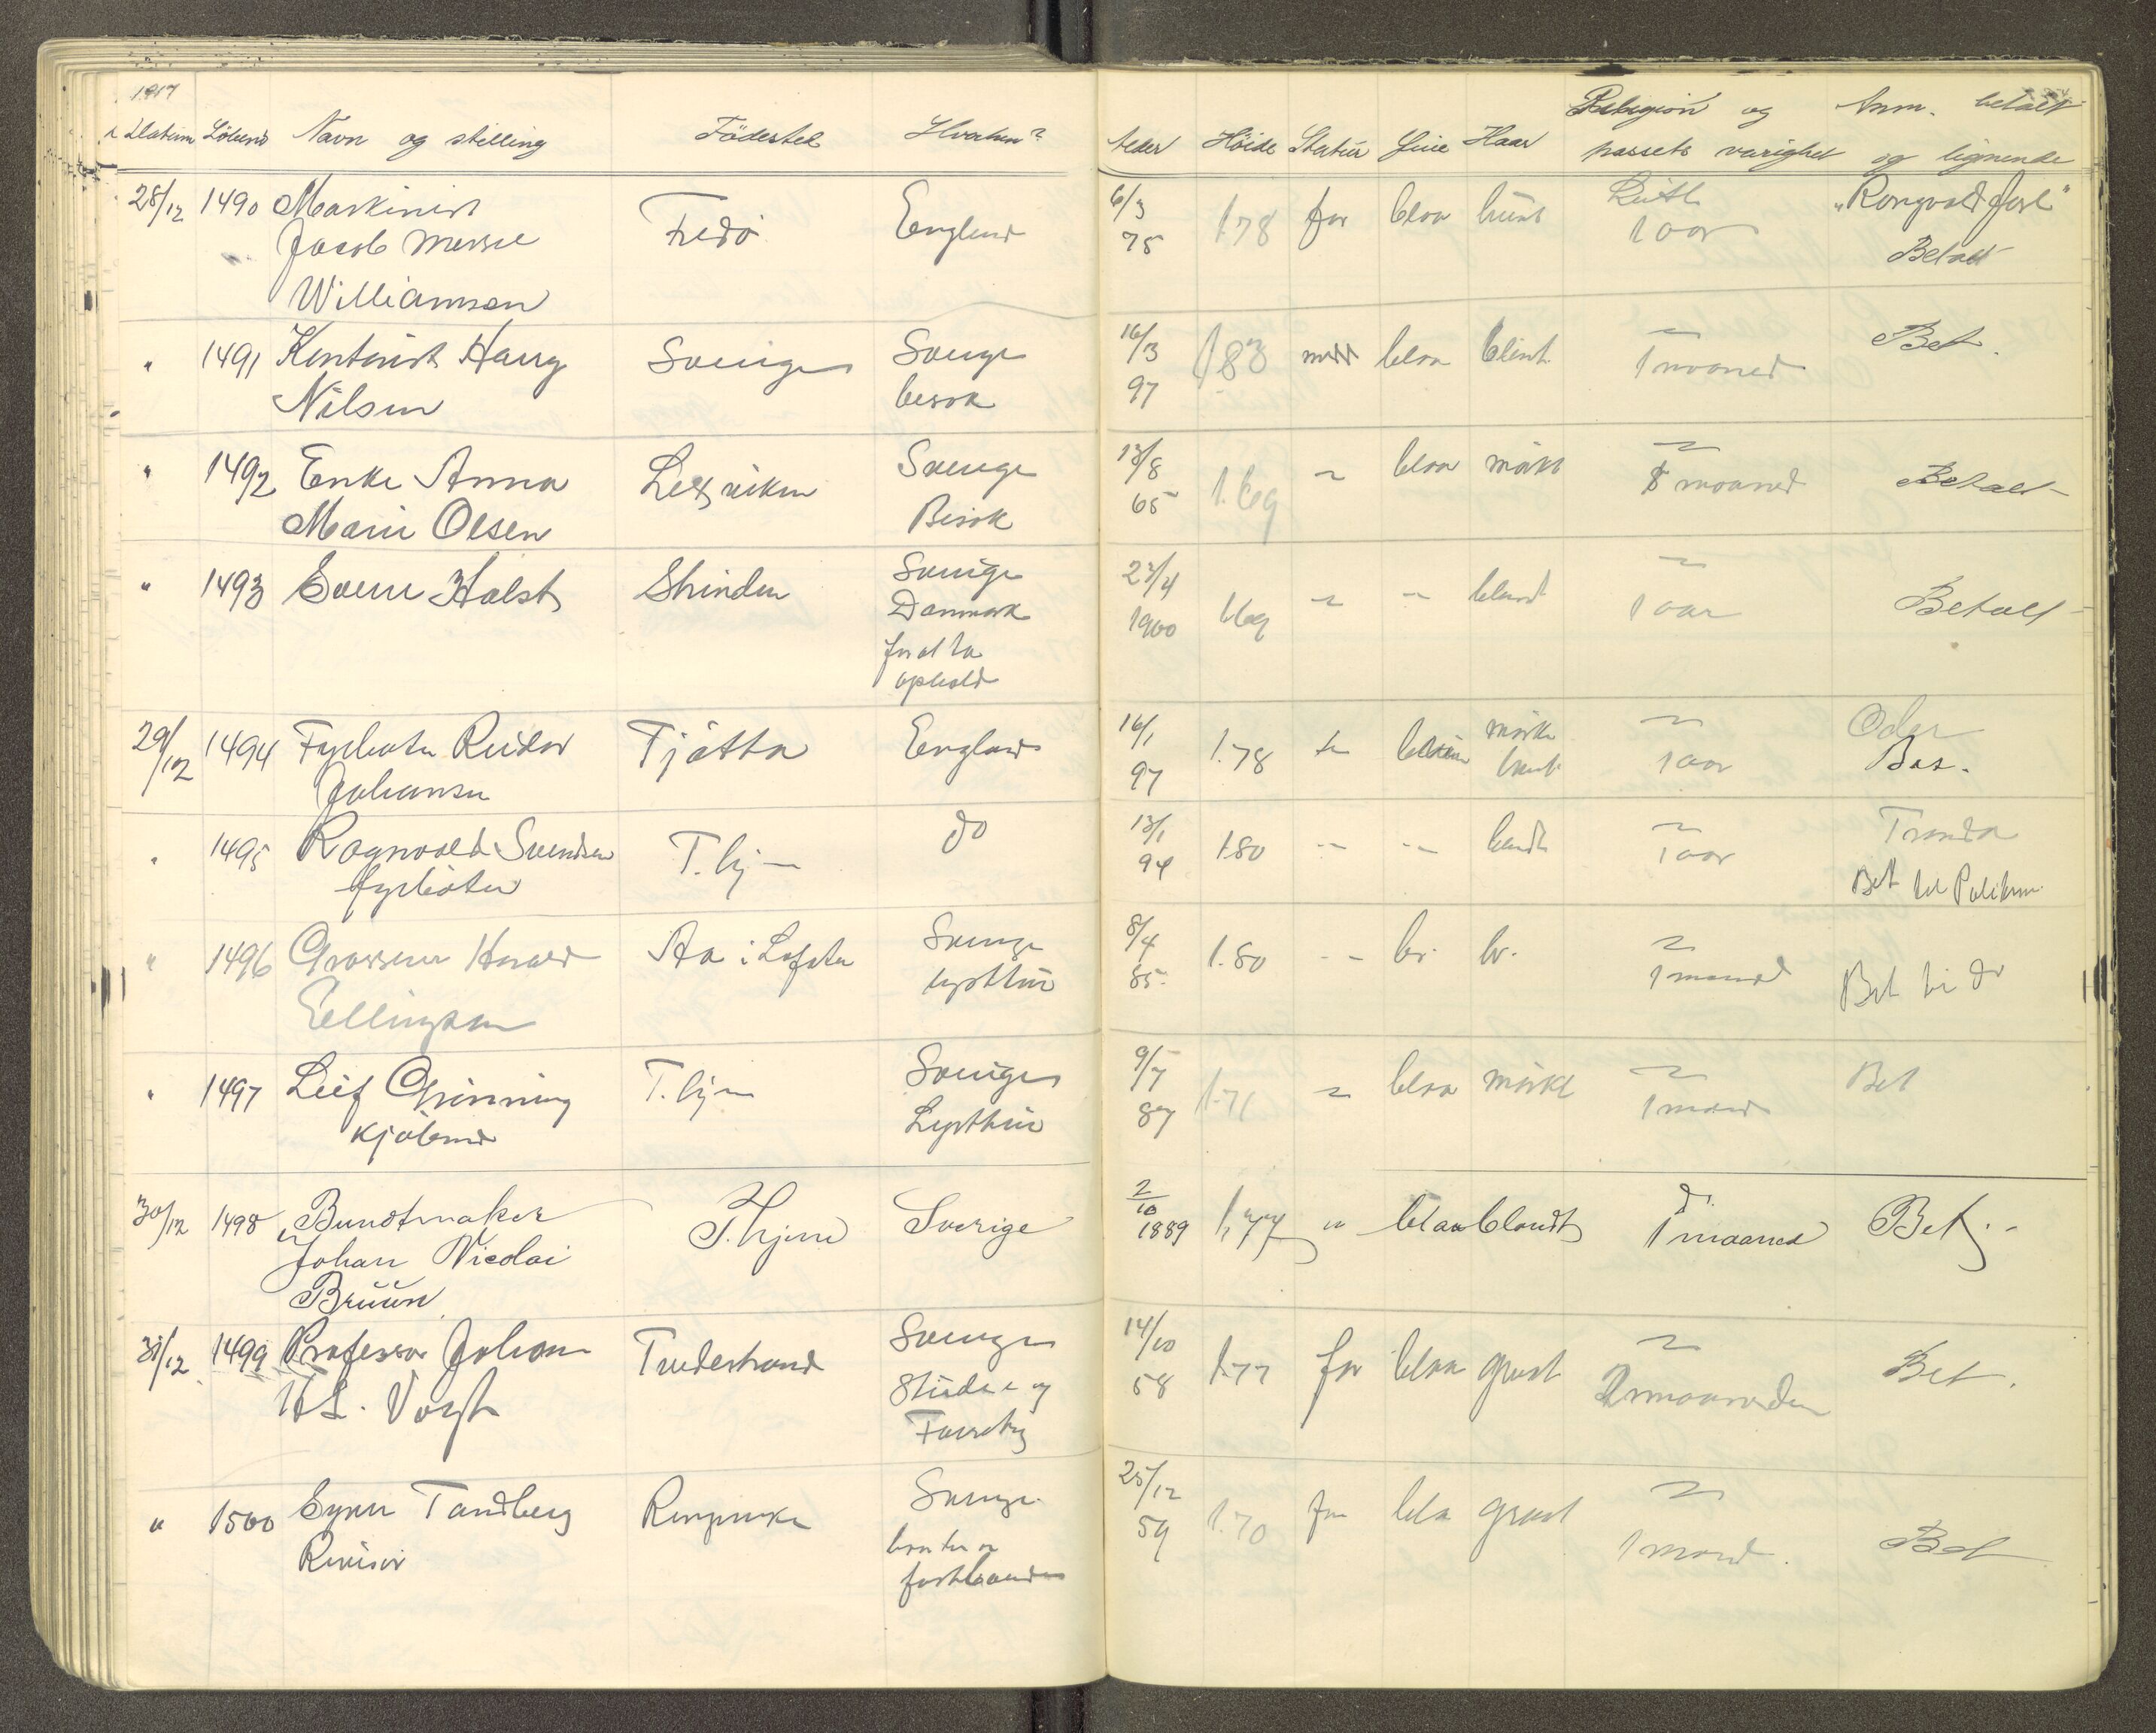 1917
Datum Löbend Navn og stilling Födested Hvorhen?
Alder Höide Statur Öine Haar Religion og passets varighet Anm. betalt og lignende
28/12 1490 Maskinist Fredö England 6/3 1.78 for blaa brunt Luth. "Rongvald Jarl"
Jacob 75 1 aar Betalt
Williamsen
" 1491 Kontorist Harry Sverige Sverige 16/3 1.83 midd blaa blont 1 maaned Bet.
Nilsen besok 97
" 1492 Enke Anna Leksviken Sverige 13/8 1.69 " blaa mörkt " Betalt
Marie Olsen Besök 65 maaned
" 1493 Sverre Holst Strinden Sverige 1.69 " " blondt " Betalt
Danmark 1900 1 aar
for at ta
ophold
29/12 1494 Fyrböter Reidar Tjötta England 16/1 1.78 mörke " Oder
Johansen 97 brunt 1 aar Bet.
" 1495 Ragnvald Svendsen T.hjem do 13/1 1.80 " " blondt " Tromda
fyrböter 94 1 aar Bet til
" 1496 Grosserer Harald Aa i Lofoten Sverige 8/4 1.80 " br. br. "
Ellingsen lysttur 85. 1 maaned Bet til do
" 1497 Leif Grönning T.hjem Sverige 9/7 1.71 " blaa mörkt " Bet
Kjöbmd Lysttur 87 1 maaned
30/12 1498 Bundtmaker T.hjem Sverige 2/10 1,77 " blaa blondt do. Bet.-
Johan Nicolai 1889 1 maaned
Bruun
31/12 1499 Professor Johan Tvedestrand Sverige 14/10 1.77 for blaa graat " Bet.
H L. Vogt Studie og 58 2 maaneder
Forretng
" 1500 Tandberg Ringerike Sverige 25/12 1.70 for blaa graat "
Revisor 59 1 maaned. Bet